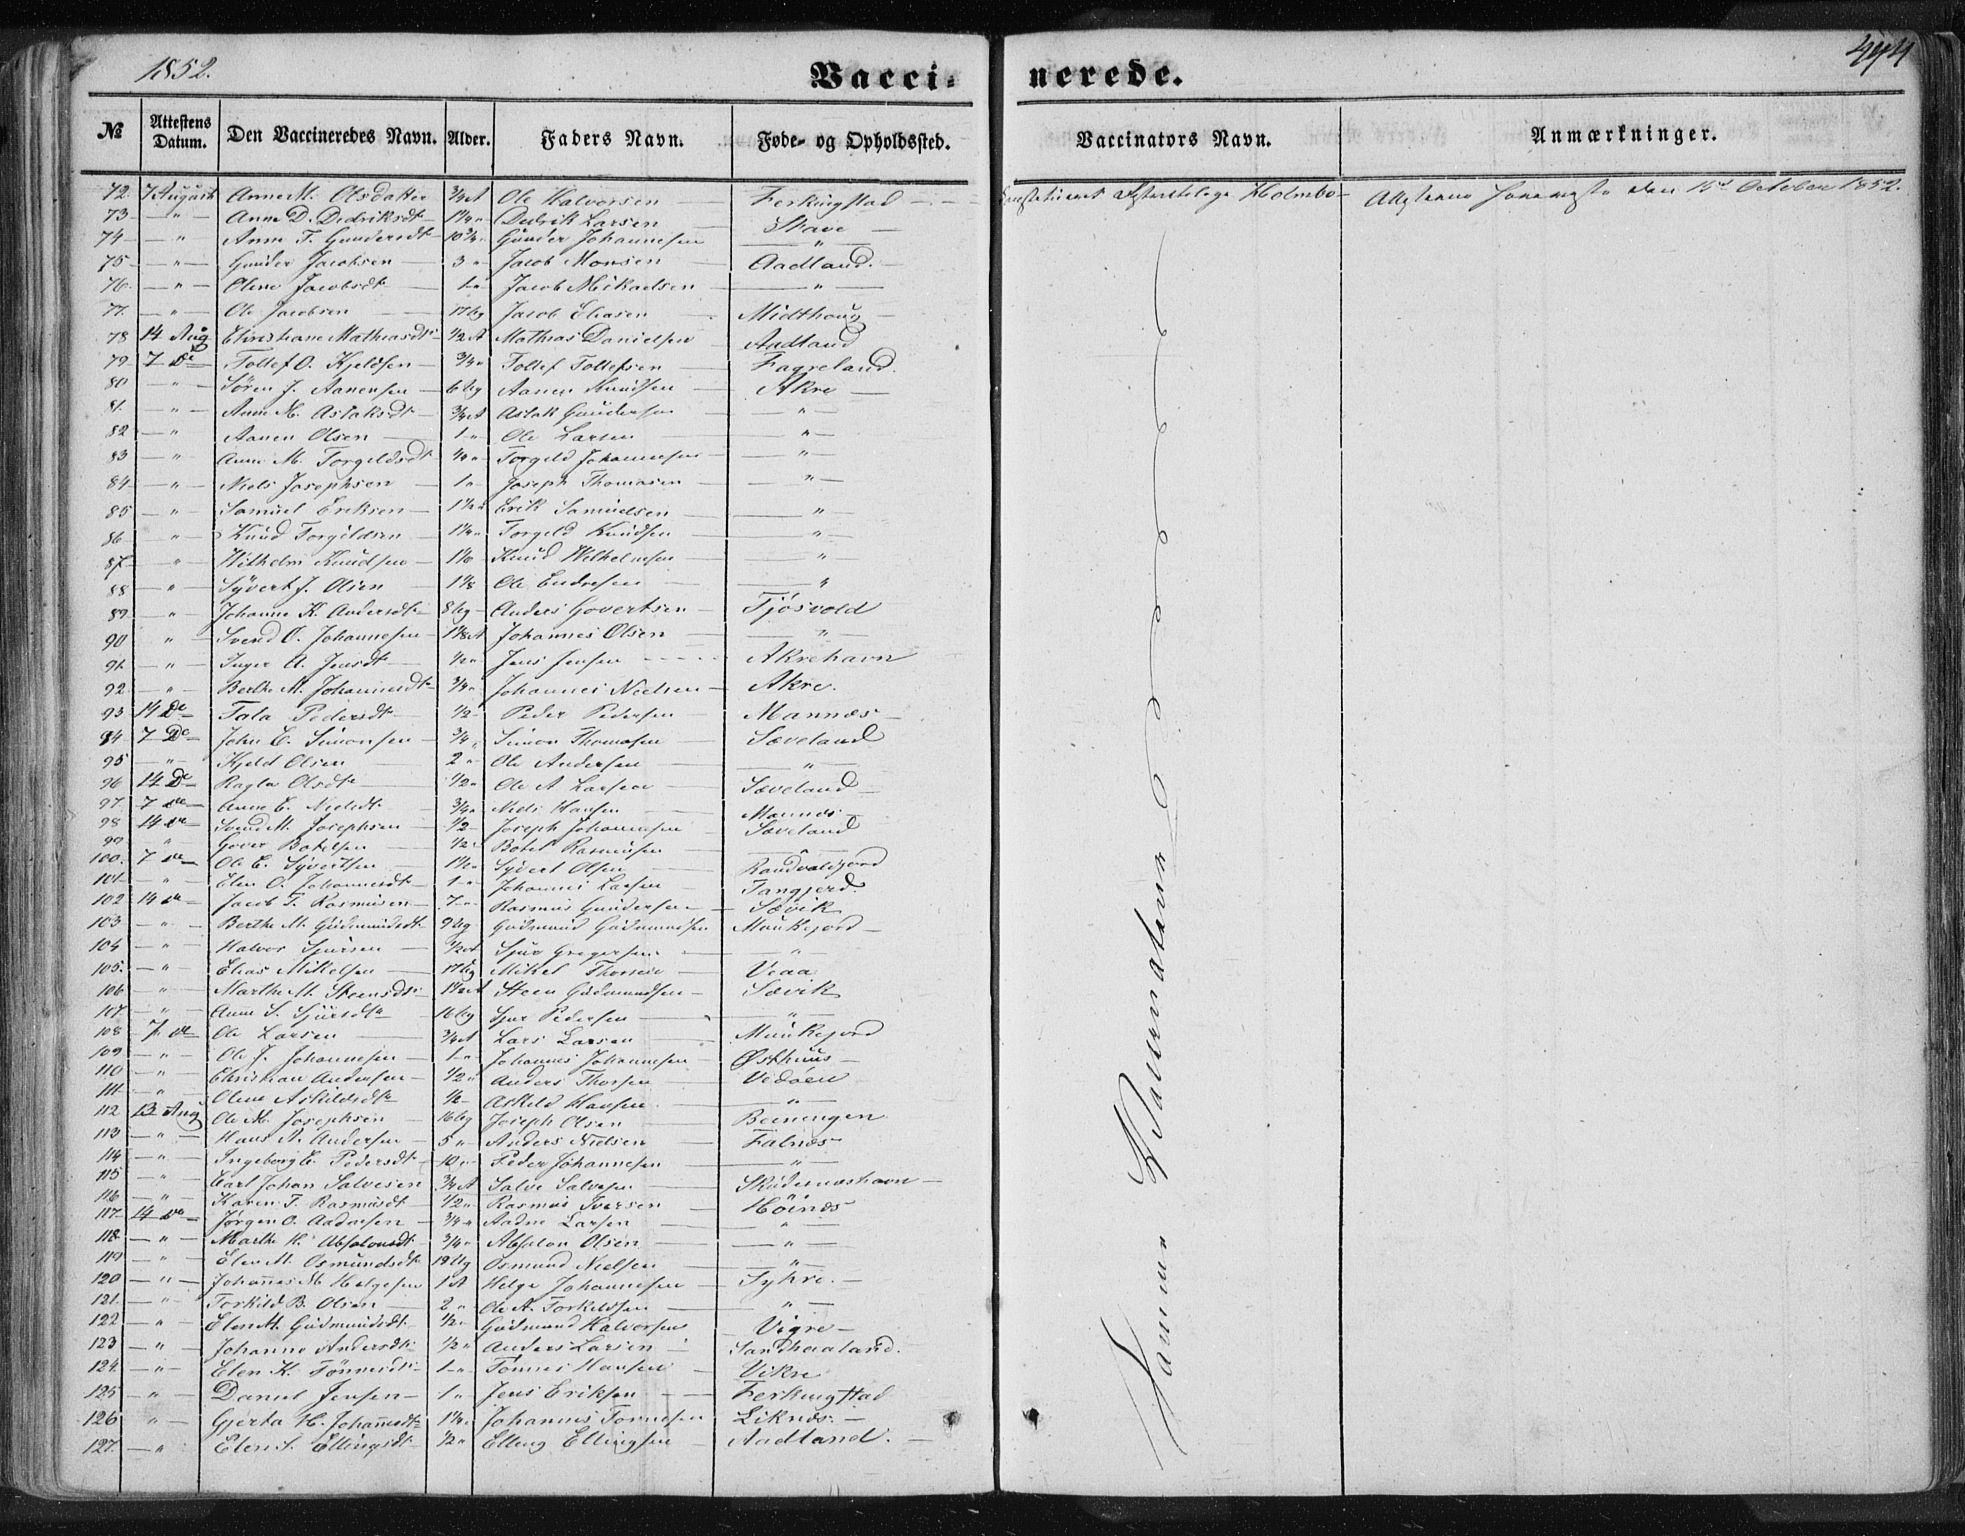 1852.
Vacci-
nerede.
494
№ Attestens Datum. Den Vaccineredes Navn. Alder. Faders Navn. Føde- og Opholdssted. Vaccinators Navn. Anmærkninger.
72. 7 August Anne M. Olsdatter 3/4 A Ole Halvorsen Ferkingstad Holmbo Attesterne foreviste den 15d October 1852.
73 - " - Anne D. Dedriksdt Dedrik Larsen Stave
74 - " Anne T. Gundersdt 10 3/4 Gunder Johannesen - " -
75 - " - Gunder Jacobsen 3 " Jacob Monsen Aadland.
76 - " - Oline Jacobsdt 1 " Jacob Mikaelsen - " -
77. - " - Ole Jacobsen 17 Ug Jacob Eliasen Midthoug
78 14 Aug Christiane Mathiasdt 1/2 A Mathias Danielsen Aadland
79 7 De Tollef O. Kjeldsen 3/4 " Tollef Tollefsen Fagreland.
80 - " - Sören J. Aanensen 6 Ug Aanen Knudsen Akre
81. - " - Ane M. Aslaksdt 3/4 A Aslak Gundersen - " -
82 - " Aanen Olsen 1 " Ole Larsen - " -
83 - " Anne M. Torgeldsdt Torgeld Johannesen - " -
84 - " - Niels Josephsen 1 " Joseph Thomasen - " -
85 - " Samuel Eriksen Erik Samuelsen - "
86 - " Knud Torgildsen Torgeld Knudsen - " -
87 - " Wilhelm Knudsen Knud Wilhelmsen - "
88 - " Syvert J. Olsen 1 1/8 Ole Endresen - "
89 - " Johanne K. Andersdt 8 Ug Anders Govertsen Tjösvold
90 " Svend O. Johannesen Johannes Olsen - " -
91 - " - Inger A. Jensdt 1/2 " Jens Jensen Akrehavn
92 - " - Berthe M. Johannesdt 3/4 " Johannes Nielsen Akre.
93 14 De Tala Pedersdt 1/2 " Peder Pedersen Mannes
94 7 De John E. Simonsen 3/4 " Simon Thomasen Sæveland
95 - " - Kjeld Olsen 2 " Ole Andersen - " -
96 14 De Ragla Olsdt 1/2 " Ole A Larsen Sæveland
97. 7 De Anne E. Nielsdt 3/4 " Niels Hansen Mannes
98 14 De Svend M. Josephsen 1/2 Joseph Johannesen Sæveland
99 " Gover Botelsen 1/2 Botel Rasmusen
100. 7 De Ole E. Syvertsen Syvert Olsen
101 - " Elen O. Johannesdt 1 " Johannes Larsen Tangjerd.
102 14 De Jacob T. Rasmusen 7 " Rasmus Gundersen Sævik
103 - " - Berthe M. Gudmundsdt 9 Ug Gudmund Gudmundsen Munkejord
104 - " - Halvor Sjursen Sjur Gregersen - " -
105. - " Elias Mikelsen 17 Ug Mikel Veaa
106 - " - Marthe M. Steensdt Steen Gudmundsen Sævik
107 - " Anne S. Sjursdtr 16 Ug Sjur Pedersen - " -
108 7 De Ole Larsen 3/4 A Lars Larsen Munkejord
109 - " - Ole J. Johannesen 1 " Johannes Johannesen Østhuus
110 - " - Christian Andersen 1/2 " Anders Thorsen Vedöen
111 - " Oline Askildsdtr Askild Hansen - " -
112 13 Aug Ole M. Josephsen 16 Ug Joseph Olsen Beiningen
113 - " - Hans Andersen 5 " Anders Nielsen Falnes
114 - " - Ingeborg E. Pedersdt 10 " Peder Johannesen - " -
115 - " Carl Johan Salvesen 3/4 A Salve Salvesen Skudesneshavn
116 - " - Karen T. Rasmusdt 1/2 " Rasmus Iversen Höines
117 14 De Jörgen O. Aadnesen 3/4 " Aadne Larsen "
118 - " - Marthe H. Absalonsdt 3/4 " Absalon Olsen - " -
119 - " Elen M. Osmundsdt 19 Ug Osmund Nielsen - " -
120 - " - Johannes M. Helgesen 1 A Helge Johannesen Syhre.
121. - " Torkild B. Olsen 2 " Ole A. Torkildsen " -
122 - " Elen M. Gudmundsdt 1/2 " Gudmund Halvorsen Vigre
123 - " - Johanne Andersdt 1/2 " Anders Larsen Sandhaaland.
124. - " - Elen K. Tönnesdt 1 " Tönnes Hansen Vikre
125 - " Daniel Jensen 1 " Jens Eriksen Ferkingstad
126 " - Gjerta H. Johannesdt Johannes Tönnesen Liknes.
127. - " Elen S. Ellingsdt 1/2 " Elling Ellingsen Aadland.
Samme Vaccinateur